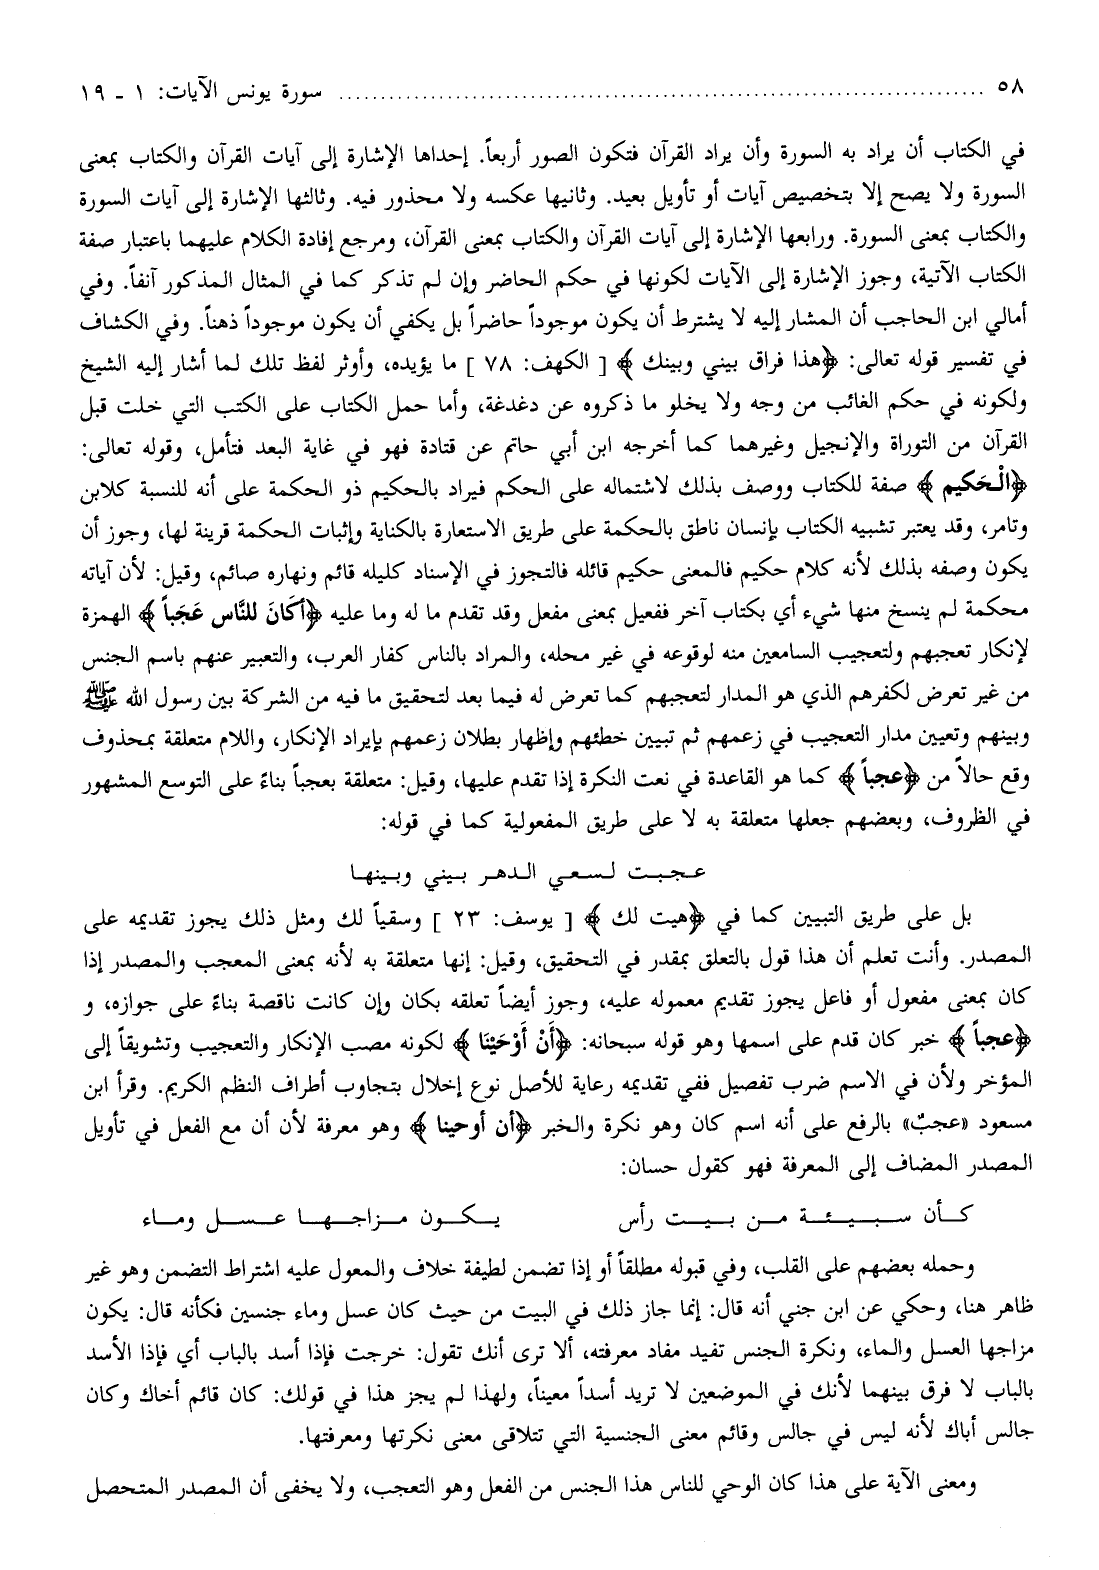 ٥٨ ........................................................................................ سورة يونس الآيات: ١ ـ ١٩
في الكتاب أن يراد به السورة وأن يراد القرآن فتكون الصور أربعاً. إحداها الإشارة إلى آيات القرآن والكتاب بمعنى
السورة ولا يصح إلا بتخصيص آيات أو تأويل بعيد. وثانيها عكسه ولا محذور فيه. وثالثها الإشارة إلى آيات السورة
والكتاب بمعنى السورة. ورابعها الإشارة إلى آيات القرآن والكتاب بمعنى القرآن، ومرجع إفادة الكلام عليهما باعتبار صفة
الكتاب الآتية، وجوز الإشارة إلى الآيات لكونها في حكم الحاضر وإن لم تذكر كما في المثال المذكور آنفاً. وفي
أمالي ابن الحاجب أن المشار إليه لا يشترط أن يكون موجوداً حاضراً بل يكفي أن يكون موجوداً ذهناً. وفي الكشاف
في تفسير قوله تعالى: ﴿هذا فراق بيني وبينك﴾ [ الكهف: ٧٨ ] ما يؤيده، وأوثر لفظ تلك لما أشار إليه الشيخ
ولكونه في حكم الغائب من وجه ولا يخلو ما ذكروه عن دغدغة، وأما حمل الكتاب على الكتب التي خلت قبل
القرآن من التوراة والإنجيل وغيرهما كما أخرجه ابن أبي حاتم عن قتادة فهو في غاية البعد فتأمل، وقوله تعالى:
﴿الْحَكيم﴾ صفة للكتاب ووصف بذلك لاشتماله على الحكم فيراد بالحكيم ذو الحكمة على أنه للنسبة كلابن
وتامر، وقد يعتبر تشبيه الكتاب بإنسان ناطق بالحكمة على طريق الاستعارة بالكناية وإثبات الحكمة قرينة لها، وجوز أن
يكون وصفه بذلك لأنه كلام حكيم فالمعنى حكيم قائله فالتجوز في الإسناد كليله قائم ونهاره صائم، وقيل: لأن آياته
محكمة لم ينسخ منها شيء أي بكتاب آخر ففعيل بمعنى مفعل وقد تقدم ما له وما عليه ﴿أكَانَ للنَّاس عَجَباً﴾ الهمزة
لإنكار تعجبهم ولتعجيب السامعين منه لوقوعه في غير محله، والمراد بالناس كفار العرب، والتعبير عنهم باسم الجنس
من غير تعرض لكفرهم الذي هو المدار لتعجبهم كما تعرض له فيما بعد لتحقيق ما فيه من الشركة بين رسول الله ﷺ
وبينهم وتعيين مدار التعجيب في زعمهم ثم تبيين خطئهم وإظهار بطلان زعمهم بإيراد الإنكار، واللام متعلقة بمحذوف
وقع حالاً من ﴿عجباً﴾ كما هو القاعدة في نعت النكرة إذا تقدم عليها، وقيل: متعلقة بعجباً بناءً على التوسع المشهور
في الظروف، وبعضهم جعلها متعلقة به لا على طريق المفعولية كما في قوله:
عجبت لسعي الدهر بيني وبينها
بل على طريق التبيين كما في ﴿هيت لك﴾ [ يوسف: ٢٣ ] وسقياً لك ومثل ذلك يجوز تقديمه على
المصدر. وأنت تعلم أن هذا قول بالتعلق بمقدر في التحقيق، وقيل: إنها متعلقة به لأنه بمعنى المعجب والمصدر إذا
كان بمعنى مفعول أو فاعل يجوز تقديم معموله عليه، وجوز أيضاً تعلقه بكان وإن كانت ناقصة بناءً على جوازه، و
﴿عجباً﴾ خبر كان قدم على اسمها وهو قوله سبحانه: ﴿أَنْ أَوْحَيْنَا﴾ لكونه مصب الإنكار والتعجيب وتشويقاً إلى
المؤخر ولأن في الاسم ضرب تفصيل ففي تقديمه رعاية للأصل نوع إخلال بتجاوب أطراف النظم الكريم. وقرأ ابن
مسعود «عجبٌ» بالرفع على أنه اسم كان وهو نكرة والخبر ﴿أن أوحينا﴾ وهو معرفة لأن أن مع الفعل في تأويل
المصدر المضاف إلى المعرفة فهو كقول حسان:
كأن سبيئة من بيت رأس يكون مزاجها عسل وماء
وحمله بعضهم على القلب، وفي قبوله مطلقاً أو إذا تضمن لطيفة خلاف والمعول عليه اشتراط التضمن وهو غير
ظاهر هنا، وحكي عن ابن جني أنه قال: إنما جاز ذلك في البيت من حيث كان عسل وماء جنسين فكأنه قال: يكون
مزاجها العسل والماء، ونكرة الجنس تفيد مفاد معرفته، ألا ترى أنك تقول: خرجت فإذا أسد بالباب أي فإذا الأسد
بالباب لا فرق بينهما لأنك في الموضعين لا تريد أسداً معيناً، ولهذا لم يجز هذا في قولك: كان قائم أخاك وكان
جالس أباك لأنه ليس في جالس وقائم معنى الجنسية التي تتلاقى معنى نكرتها ومعرفتها.
ومعنى الآية على هذا كان الوحي للناس هذا الجنس من الفعل وهو التعجب، ولا يخفى أن المصدر المتحصل